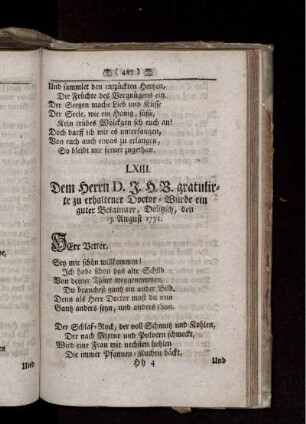 ( 487 )
Und sammlet den entzückten Hertzen,
Die Früchte des Vergnügens ein.
Der Seegen mache Lieb und Küsse
Der Seele, wie ein Honig, süsse,
Kein trübes Wölckgen seh euch an!
Doch darff ich mir es unterfangen,
Von euch auch etwas zu erlangen,
So bleibt mir ferner zugethan.
LXIII.
Dem Herrn D. J. H. V. gratulir-
te zu erhaltener Doctor-Würde ein
guter Bekannter, Dölitzsch, den
3. August 1731.
HErr Vetter,
Sey mir schön willkommen!
Ich habe schon das alte Schild
Von deiner Thüre weggenommen,
Du brauchest gantz ein ander Bild,
Denn als Herr Doctor must du nun
Gantz anders seyn, und anders thun.
Der Schlaf-Rock, der voll Schmutz und Kohlen,
Der nach Mixtur und Pulvern schmeckt,
Wird eine Frau mit nechsten hohlen
Die immer Pfannen-Kuchen bäckt,
Hh 4
Und